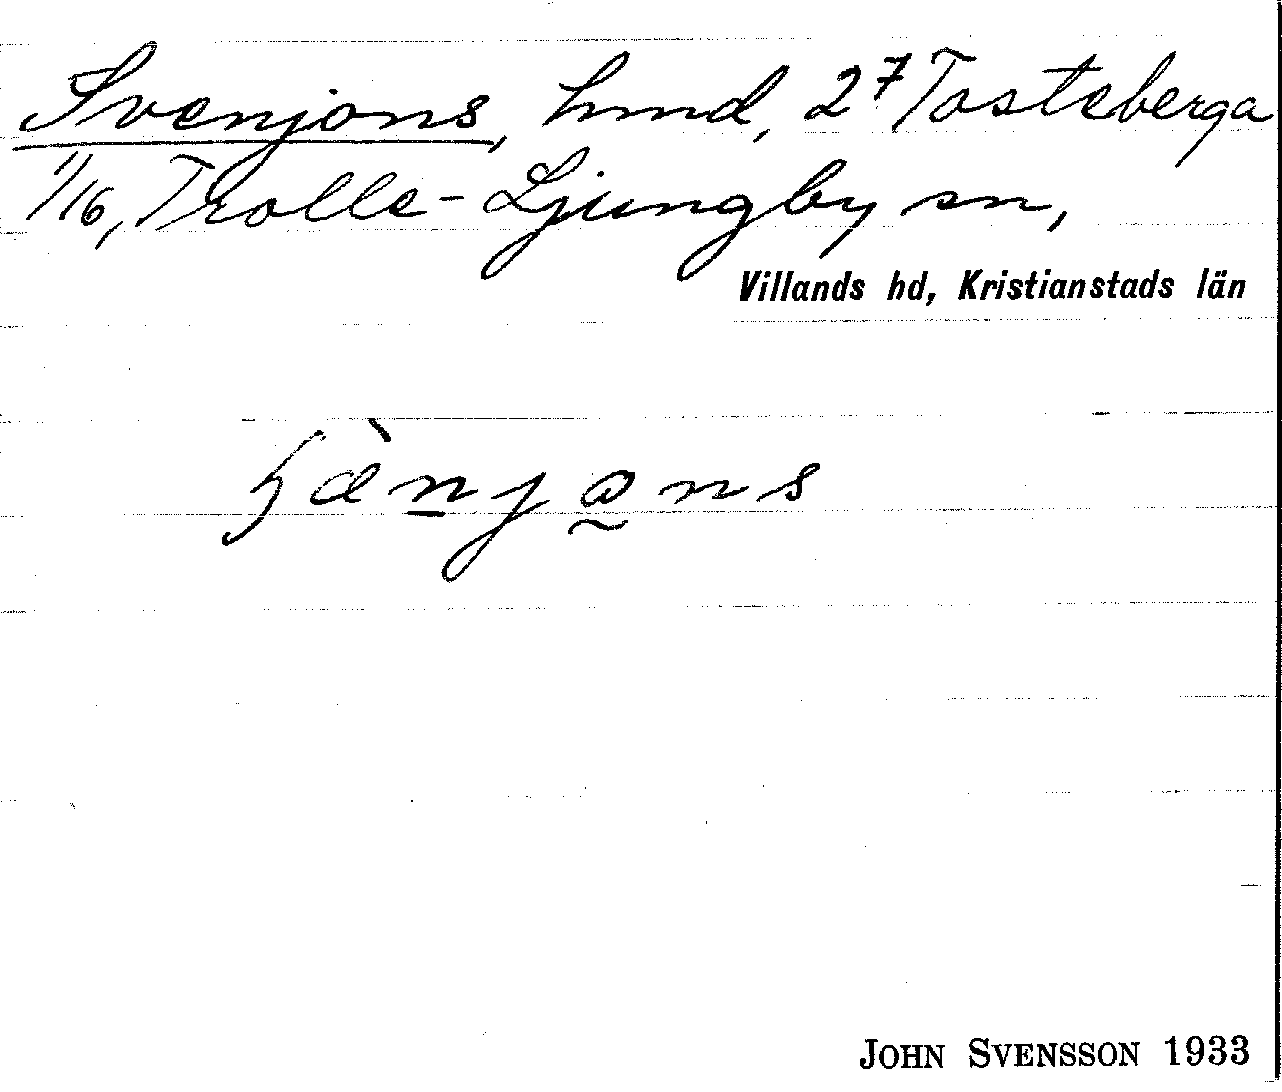 Svenjons, hmd, 2⁷ Tosteberga
1/16, Trolle-Ljungby sn,
Villands hd, Kristianstads län
JOHN SVENSSON 1933